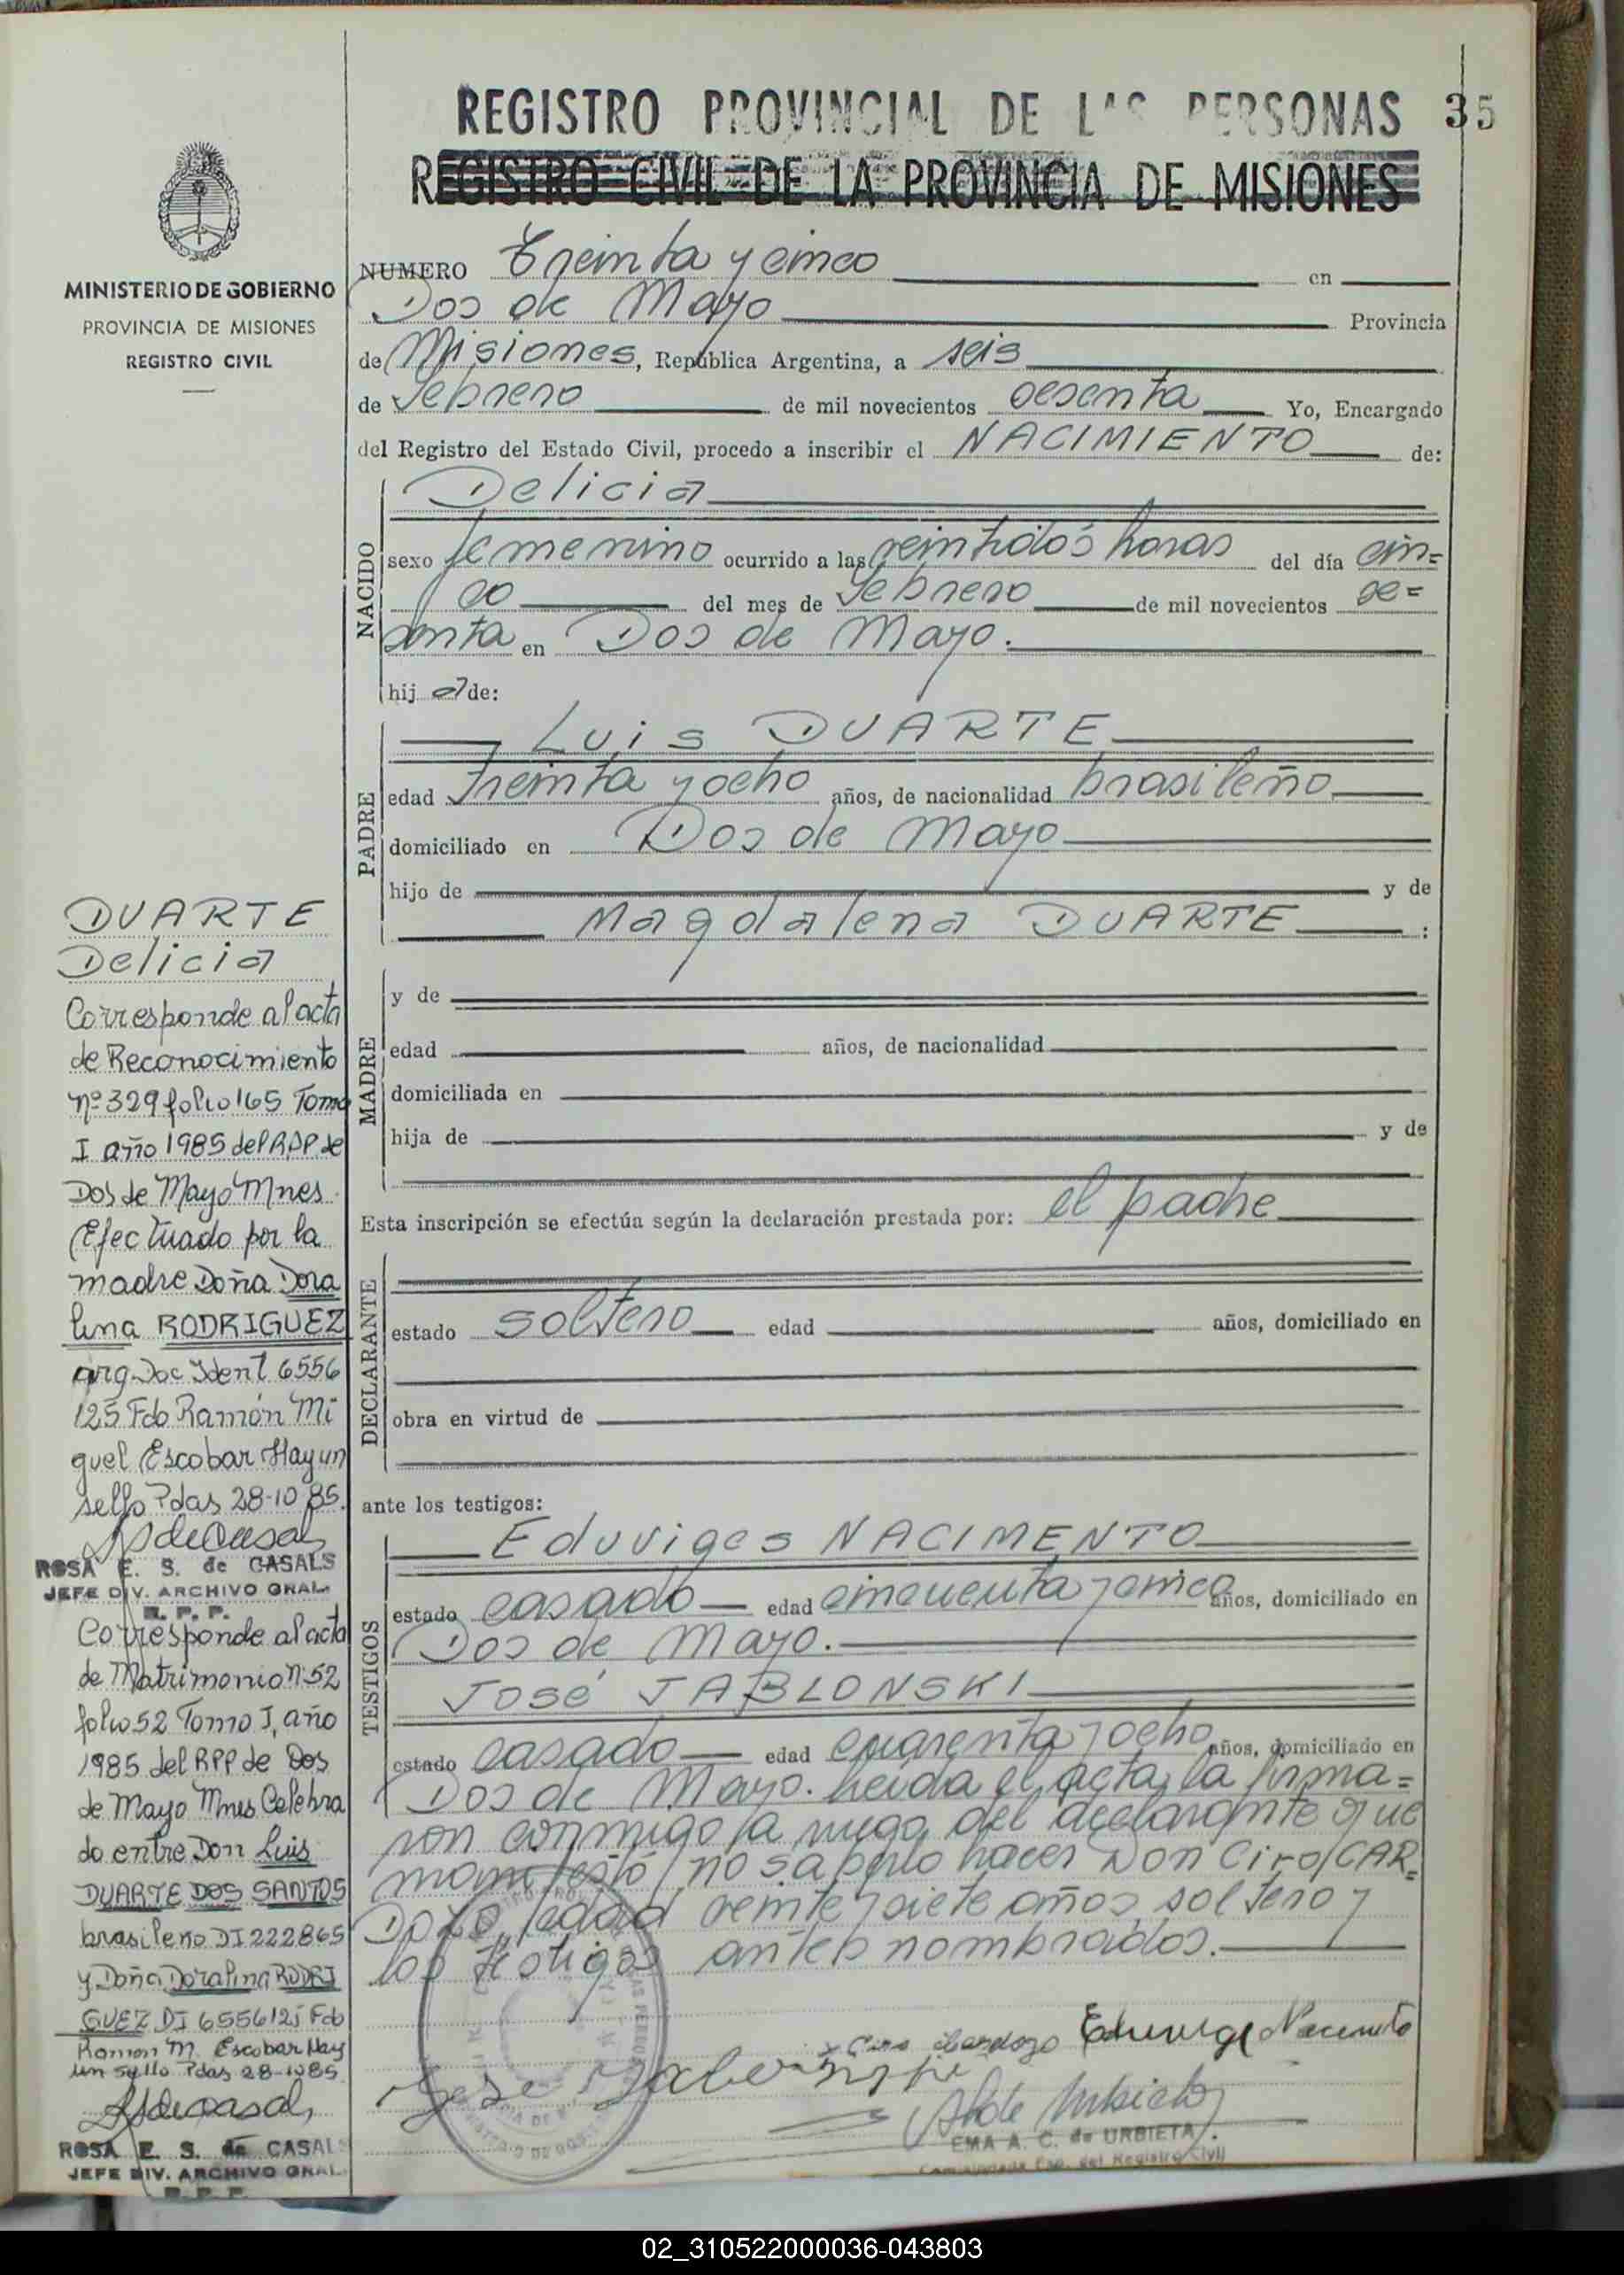 REGISTRO PROVINCIAL DE LAS PERSONAS 35
REGISTRO CIVIL DE LA PROVINCIA DE MISIONES
MINISTERIO DE GOBIERNO
PROVINCIA DE MISIONES
REGISTRO CIVIL
NUMERO Treinta y cinco en
Dos de Mayo Provincia
de Misiones, República Argentina, a seis
de Febrero de mil novecientos sesenta Yo, Encargado
del Registro del Estado Civil, procedo a inscribir el NACIMIENTO de:
NACIDO
Delicia
sexo femenino ocurrido a las veintidós horas del día cin=
co del mes de Febrero de mil novecientos se=
senta en Dos de Mayo.
hij a de:
PADRE
Luis DUARTE
edad treinta y ocho años, de nacionalidad brasileño
domiciliado en Dos de Mayo
hijo de y de
Magdalena DUARTE :
MADRE
y de
edad años, de nacionalidad
domiciliada en
hija de y de
Esta inscripción se efectúa según la declaración prestada por: el padre
DECLARANTE
estado soltero edad años, domiciliado en
obra en virtud de
ante los testigos:
TESTIGOS
Eduviges NACIMENTO
estado casado edad cincuenta y cinco años, domiciliado en
Dos de Mayo.
José JABLONSKI
estado casado edad cuarenta y ocho años, domiciliado en
Dos de Mayo. Leída el acta, la firma=
ron conmigo, a ruego del declarante que
manifestó no saberlo hacer Don Ciro CAR=
DOZO, edad veinte y siete años, soltero y
los testigos antes nombrados.
Ciro Cardozo Eduvige Nacimento
Jose Jablonski
EMA A. C. de URBIETA
Comisionada Esp. del Registro Civil
DUARTE
Delicia
Corresponde al acta
de Reconocimiento
nº 329 folio 165 Tomo
I año 1985 del R.P.P. de
Dos de Mayo Mnes.
Efectuado por la
madre Doña Dora
lina RODRIGUEZ
arg Doc Ident 6556
125 Fdo Ramón Mi
guel Escobar Hay un
sello Pdas 28-10 85.
ROSA E. S. de CASALS
JEFE DIV. ARCHIVO GRAL.
R. P. P.
Corresponde al acta
de Matrimonio Nº 52
folio 52 Tomo I, año
1985 del RPP de Dos
de Mayo Mnes Celebra
do entre Don Luis
DUARTE DOS SANTOS
brasileño DI 222865
y Doña Doralina RODRI
GUEZ DI 6556125 Fdo
Ramon M. Escobar Hay
un sello Pdas 28-10 85
ROSA E. S. de CASALS
JEFE DIV. ARCHIVO GRAL.
R. P. P.
02_310522000036-043803